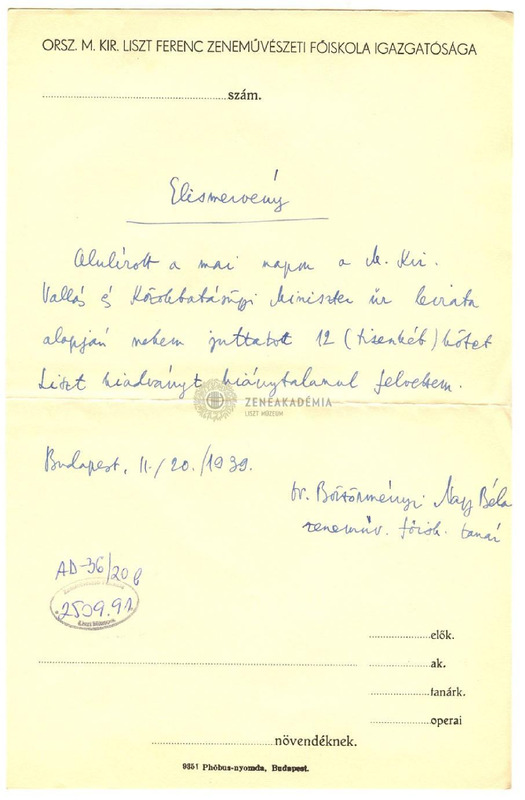 ORSZ. M. KIR. LISZT FERENC ZENEMŰVÉSZETI FŐISKOLA IGAZGATÓSÁGA
szám.
Elismervény
Alulírott a mai napon a M. Kir.
Vallás és Közoktatásügyi Miniszter úr leirata
alapján nekem juttatott 12 (tizenkét) kötet
Liszt kiadványt hiánytalanul felvettem.
ZENEAKADÉMIA
LISZT MÚZEUM
Budapest, 11./20./1939.
dr. Böszörményi Nagy Béla
zeneműv. főisk. tanár
AD-36/20b
2509.92
elők.
ak.
tanárk.
operai
növendéknek.
9351 Phőbus-nyomda, Budapest.